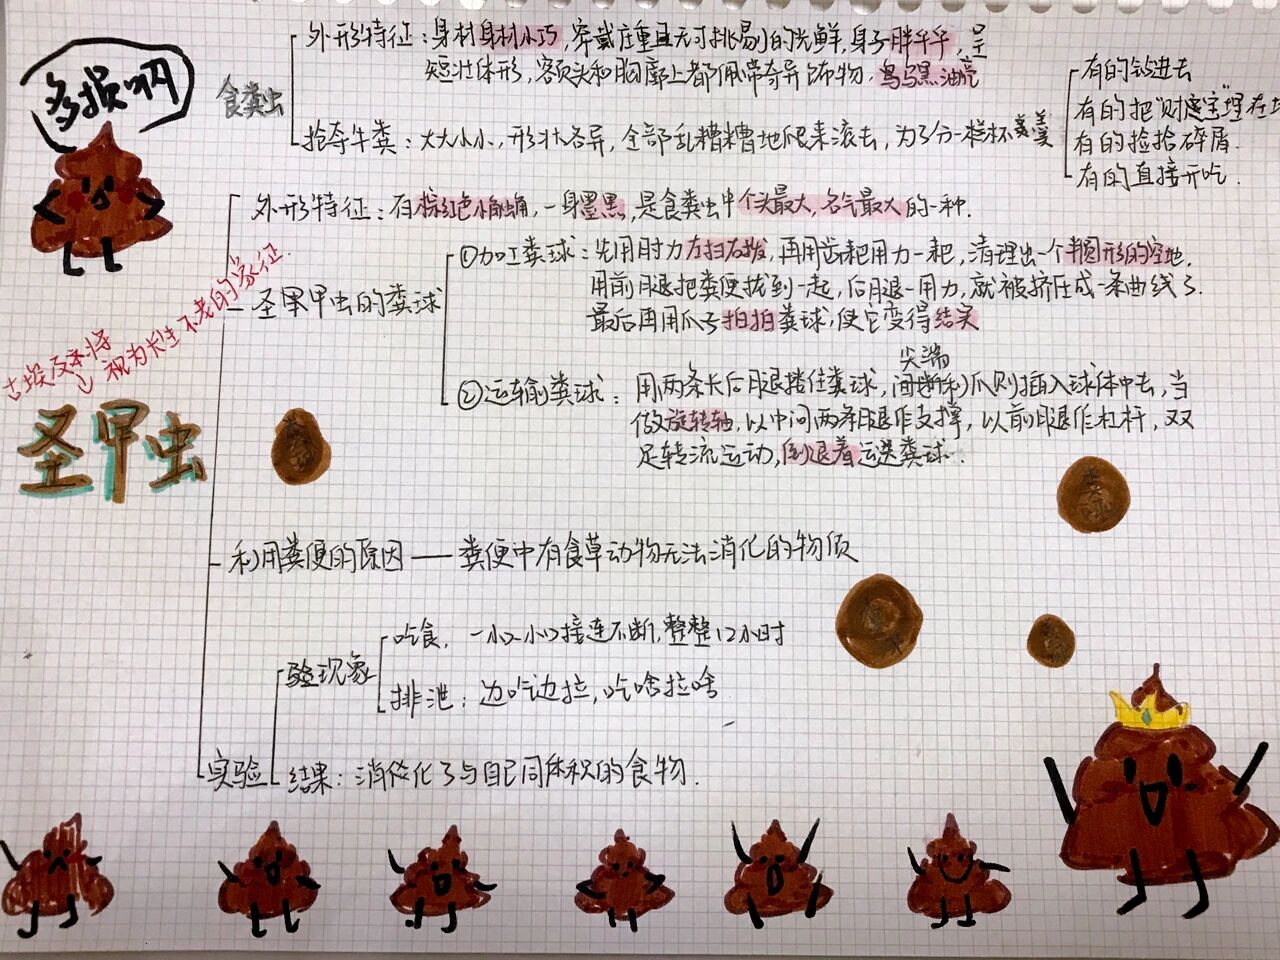 多损呐
食粪虫
外形特征：身材身材小巧，穿戴庄重且无可挑剔的光鲜，身子胖乎乎，呈
短壮体形，额头和胸廓上都佩带奇异饰物，乌乌黑油亮
抢夺牛粪：大大小小，形状各异，全部乱糟糟地爬来滚去，为了分一样杯羹羹
有的钻进去
有的把“财宝”埋在
有的捡拾碎屑.
有的直接开吃.
外形特征：有棕红色小触角，一身墨黑，是食粪虫中个头最大，名气最大的一种.
圣甲虫的粪球
①加工粪球：先用肘力左扫右拨，再用齿耙用力一耙，清理出一个半圆形的空地.
用前腿把粪便拢到一起，后腿一用力，就被挤压成一条曲线了.
最后再用爪子拍拍粪球，使它变得结实
尖端
②运输粪球：用两条长后腿搭住粪球，利爪则插入球体中去，当
做旋转轴，以中间两条腿作支撑，以前腿作杠杆，双
足转流运动，倒退着运送粪球.
古埃及将
视为长生不老的象征.
圣甲虫
粪
粪球
利用粪便的原因——粪便中有食草动物无法消化的物质
实验
验现象
吃食，一小口一小口接连不断，整整12小时
排泄：边吃边拉，吃啥拉啥
结果：消化了与自己同体积的食物.